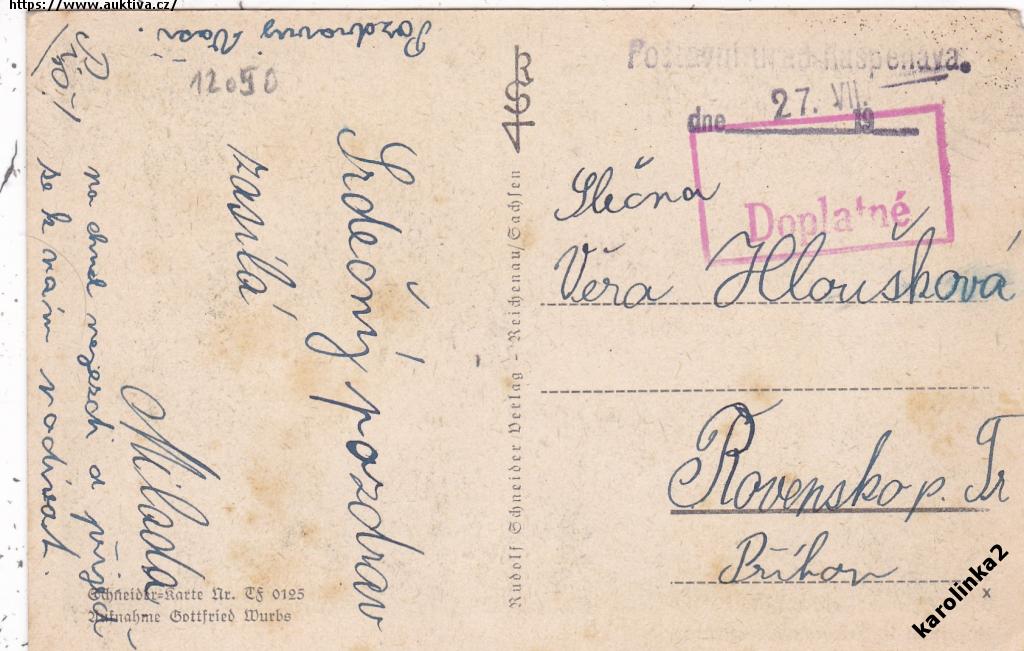 https://www.auktiva.cz/
Pozdravuj Vaši.
12050
Srdečný pozdrav
zasílá
Milada
na chvíl
se k nám podívat.
Schneider-Karte Nr. TF 0125
Aufnahme Gottfried Wurbs
Rudolf Schneider Verlag - Reichenau/Sachsen
RSV
Poštovní úřad Raspenava.
dne 27. VII. 19
Doplatné
Slečna
Věra Hloušková
Rovensko p. Tr
Příhon
x
karolinka2